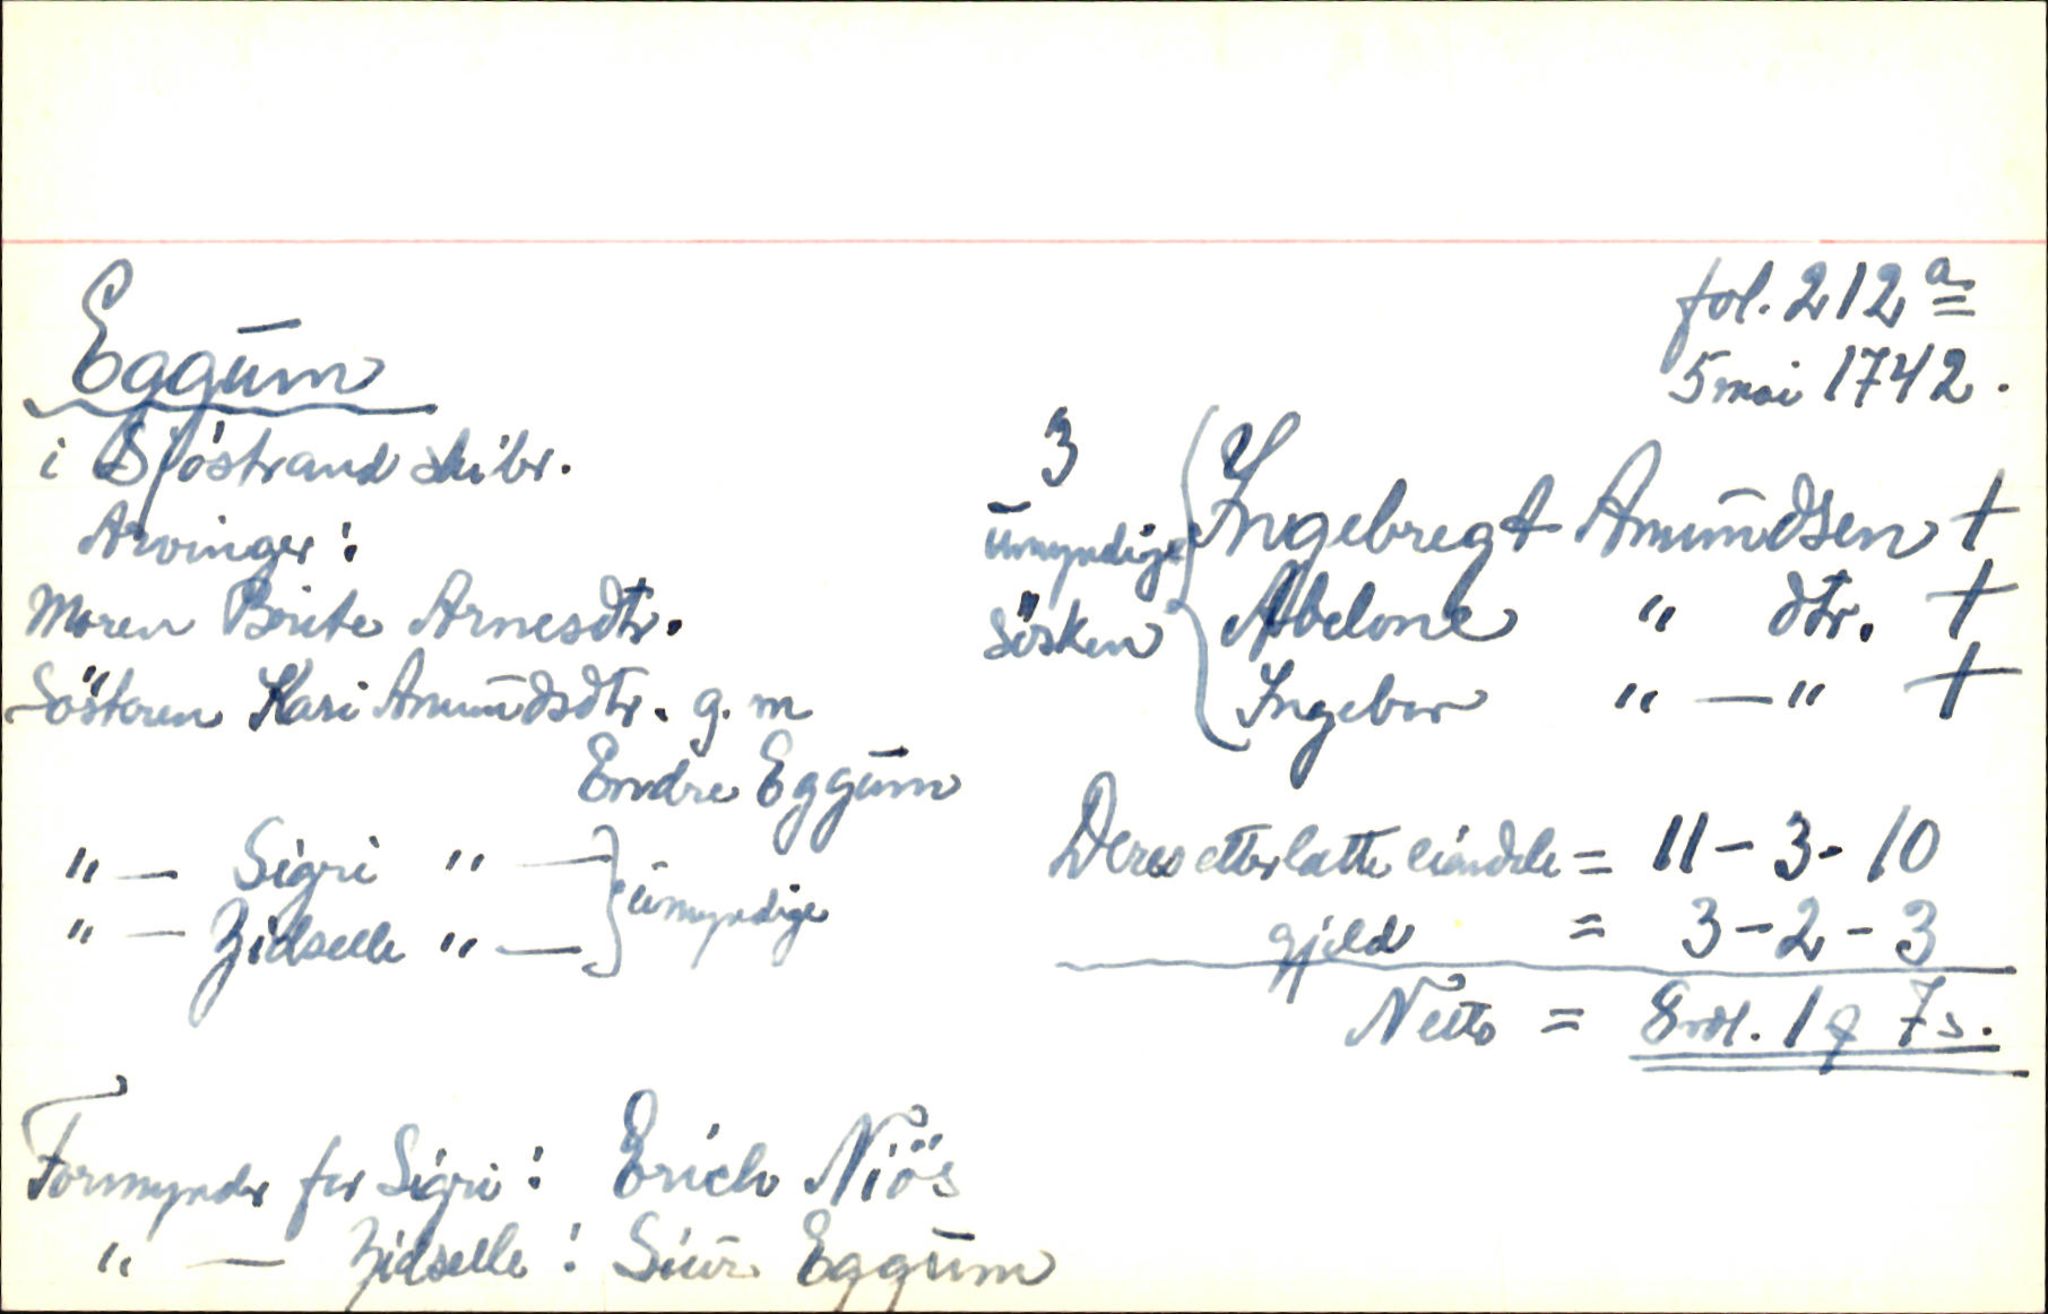 fol. 212 a
5 mai 1742.
Eggum
i Sjöstrand skibr.
Arvinger:
Moren Brite Arnesdtr.
Søsteren Kari Amundsdtr. g. m
Endre Eggum
" — Sigri " —
" — Zidselle " — } umyndige
3 umyndige søsken {
Ingebregt Amundsen †
Abelone " dtr. †
Ingebor " — " †
Deres etterlatte eiendele = 11 - 3 - 10
gjeld = 3 - 2 - 3
Netto = 8 rdl. 1 q 7 s.
Formynder for Sigri: Erich Niös
" — Zidselle: Siur Eggum